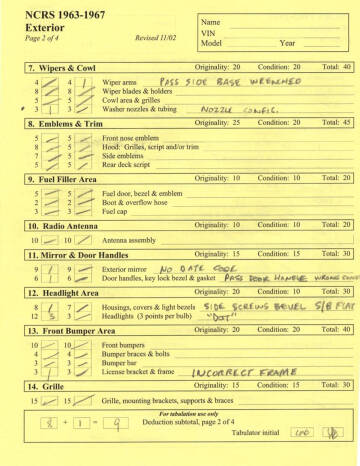 NCRS 1963-1967
Exterior
Page 2 of 4 Revised 11/02
Name
VIN
Model Year
7. Wipers & Cowl Originality: 20 Condition: 20 Total: 40
4 4 1 Wiper arms PASS SIDE BASE WRENCHED
8 8 Wiper blades & holders
5 5 Cowl area & grilles
3 1 3 Washer nozzles & tubing NOZZLE CONFIG.
8. Emblems & Trim Originality: 25 Condition: 20 Total: 45
5 5 Front nose emblem
8 8 Hood: Grilles, script and/or trim
7 Side emblems
5 5 Rear deck script
9. Fuel Filler Area Originality: 10 Condition: 10 Total: 20
5 5 Fuel door, bezel & emblem
2 2 Boot & overflow hose
3 3 Fuel cap
10. Radio Antenna Originality: 10 Condition: 10 Total: 20
10 10 Antenna assembly
11. Mirror & Door Handles Originality: 15 Condition: 15 Total: 30
9 1 9 Exterior mirror NO DATE CODE
6 1 6 Door handles, key lock bezel & gasket PASS DOOR HANDLE WRONG
12. Headlight Area Originality: 20 Condition: 10 Total: 30
8 1 7 Housings, covers & light bezels SIDE SCREWS BEVEL S/B FLAT
12 3 3 Headlights (3 points per bulb) "DOT"
13. Front Bumper Area Originality: 20 Condition: 20 Total: 40
10 10 Front bumpers
4 4 Bumper braces & bolts
3 3 Bumper bar
3 1 3 License bracket & frame INCORRECT FRAME
14. Grille Originality: 15 Condition: 15 Total: 30
15 15 Grille, mounting brackets, supports & braces
For tabulation use only
8 + 1 = 9 Deduction subtotal, page 2 of 4
Tabulator initial